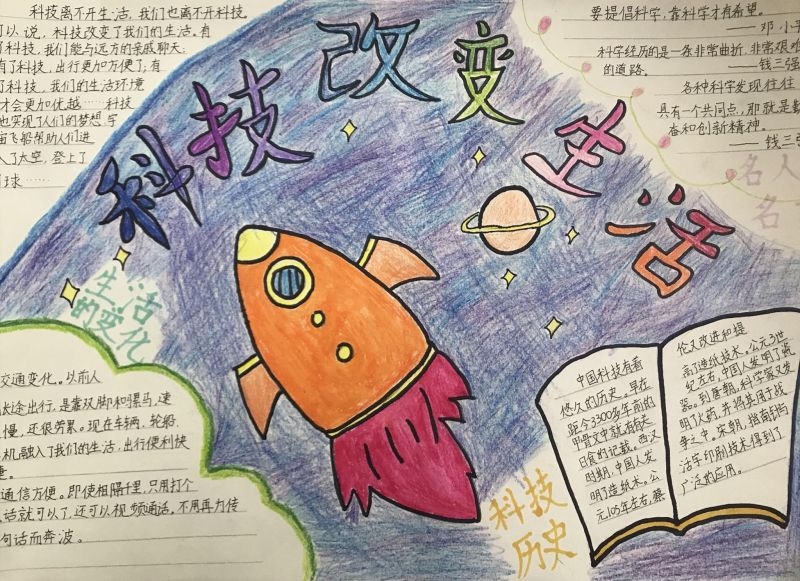 科技离不开生活，我们也离不开科技。
可以说，科技改变了我们的生活。有
了科技，我们能与远方的亲戚聊天；
有了科技，出行更加方便了；有
了科技，我们的生活环境
才会更加优越……科技
也实现了人们的梦想，宇
宙飞船帮助人们进
入了太空，登上了
月球……
科技改变生活
要提倡科学，靠科学才有希望。
——邓小平
科学经历的是一条非常曲折、非常艰难
的道路。 ——钱三强
各种科学发现往往
具有一个共同点，那就是勤
奋和创新精神。
——钱三强
名人
名
生活
的变化
交通变化。以前人
长途出行，是靠双脚和骡马，速
慢，还很劳累。现在车辆、轮船、
机融入了我们的生活，出行便利快
捷。
通信方便。即使相隔千里，只用打个
话就可以了，还可以视频通话。不用再为传
句话而奔波。
科技
历史
中国科技有着
悠久的历史。早在
距今3300多年前的
甲骨文中就有
日食的记载。西汉
时期，中国人发
明了造纸术。公
元105年左右，蔡
伦又改进和提
高了造纸技术。公元3世
纪左右，中国人发明了瓷
器。到唐朝，科学家又发
明了火药，并将其用于战
争之中。宋朝，指南针与
活字印刷技术得到了
广泛的应用。